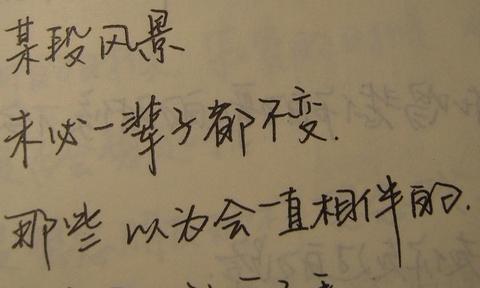 某段风景
未必一辈子都不变.
那些以为会一直相伴的.